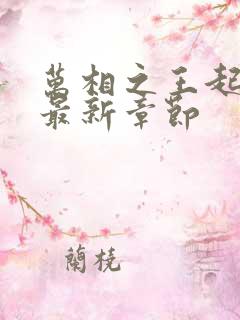 萬相之王起
最新章節
蘭橈